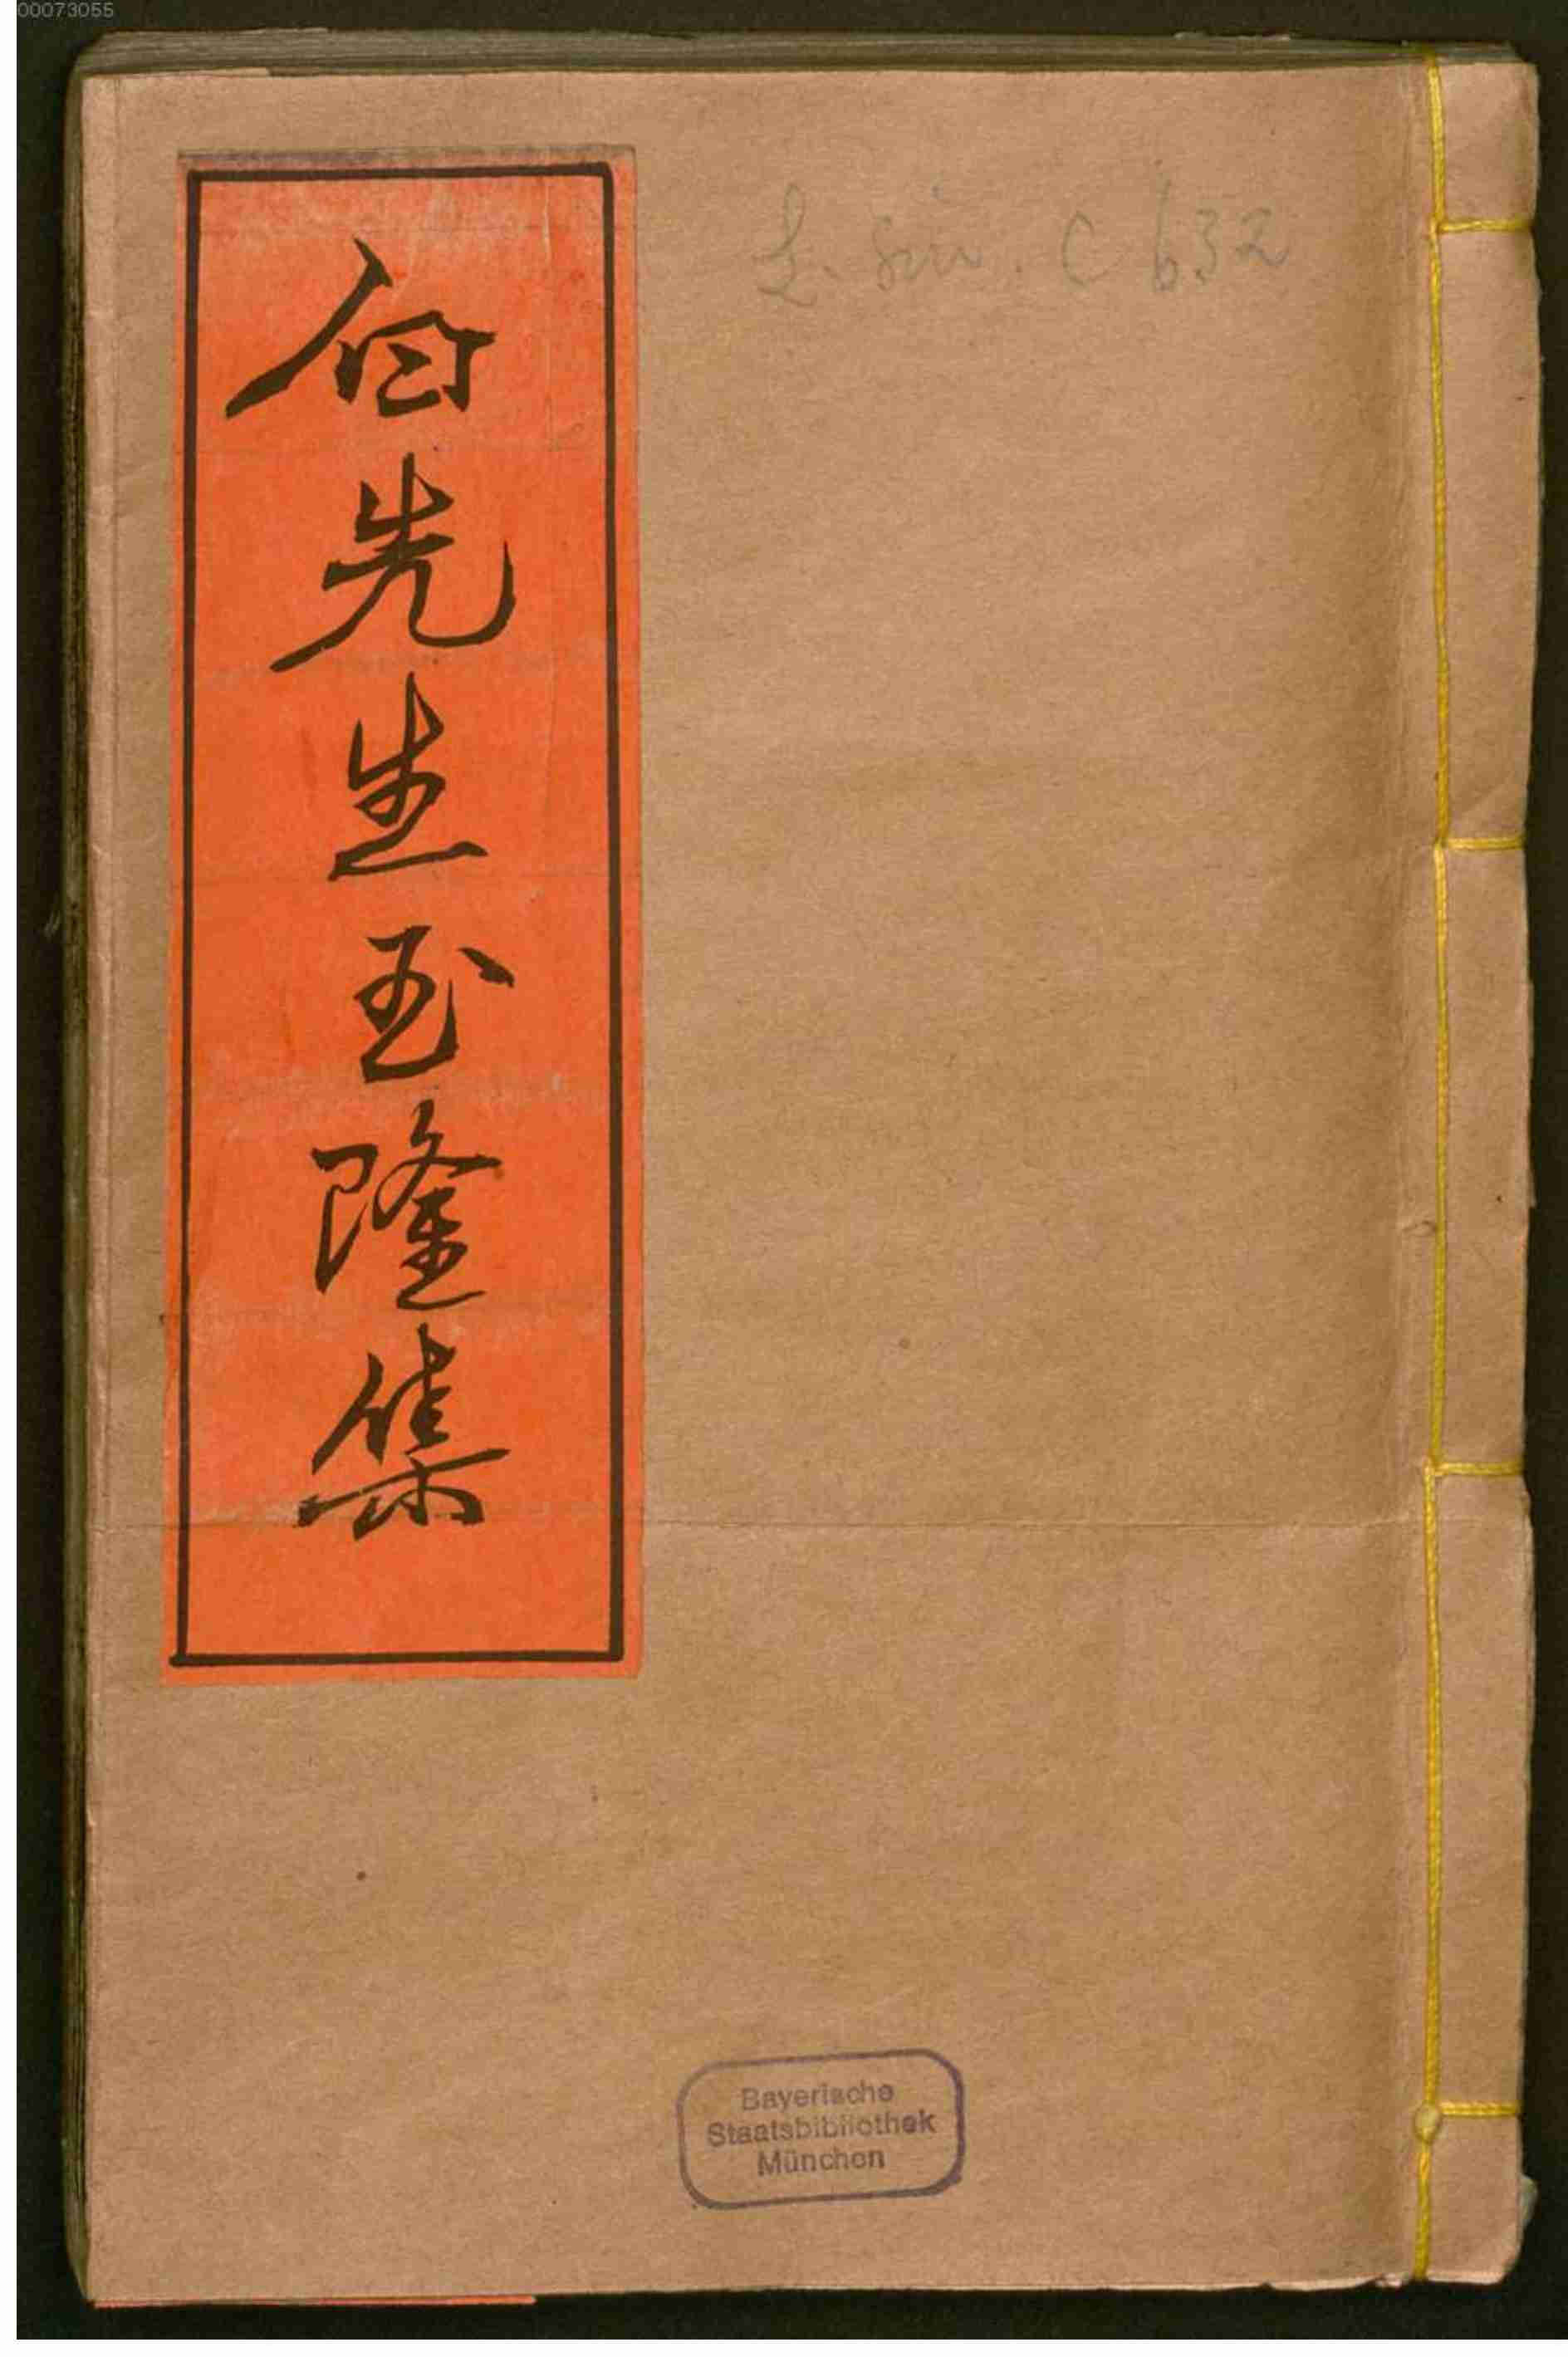 00073055
白先生玉隆集
L. sin. C 632
Bayerische
Staatsbibliothek
München